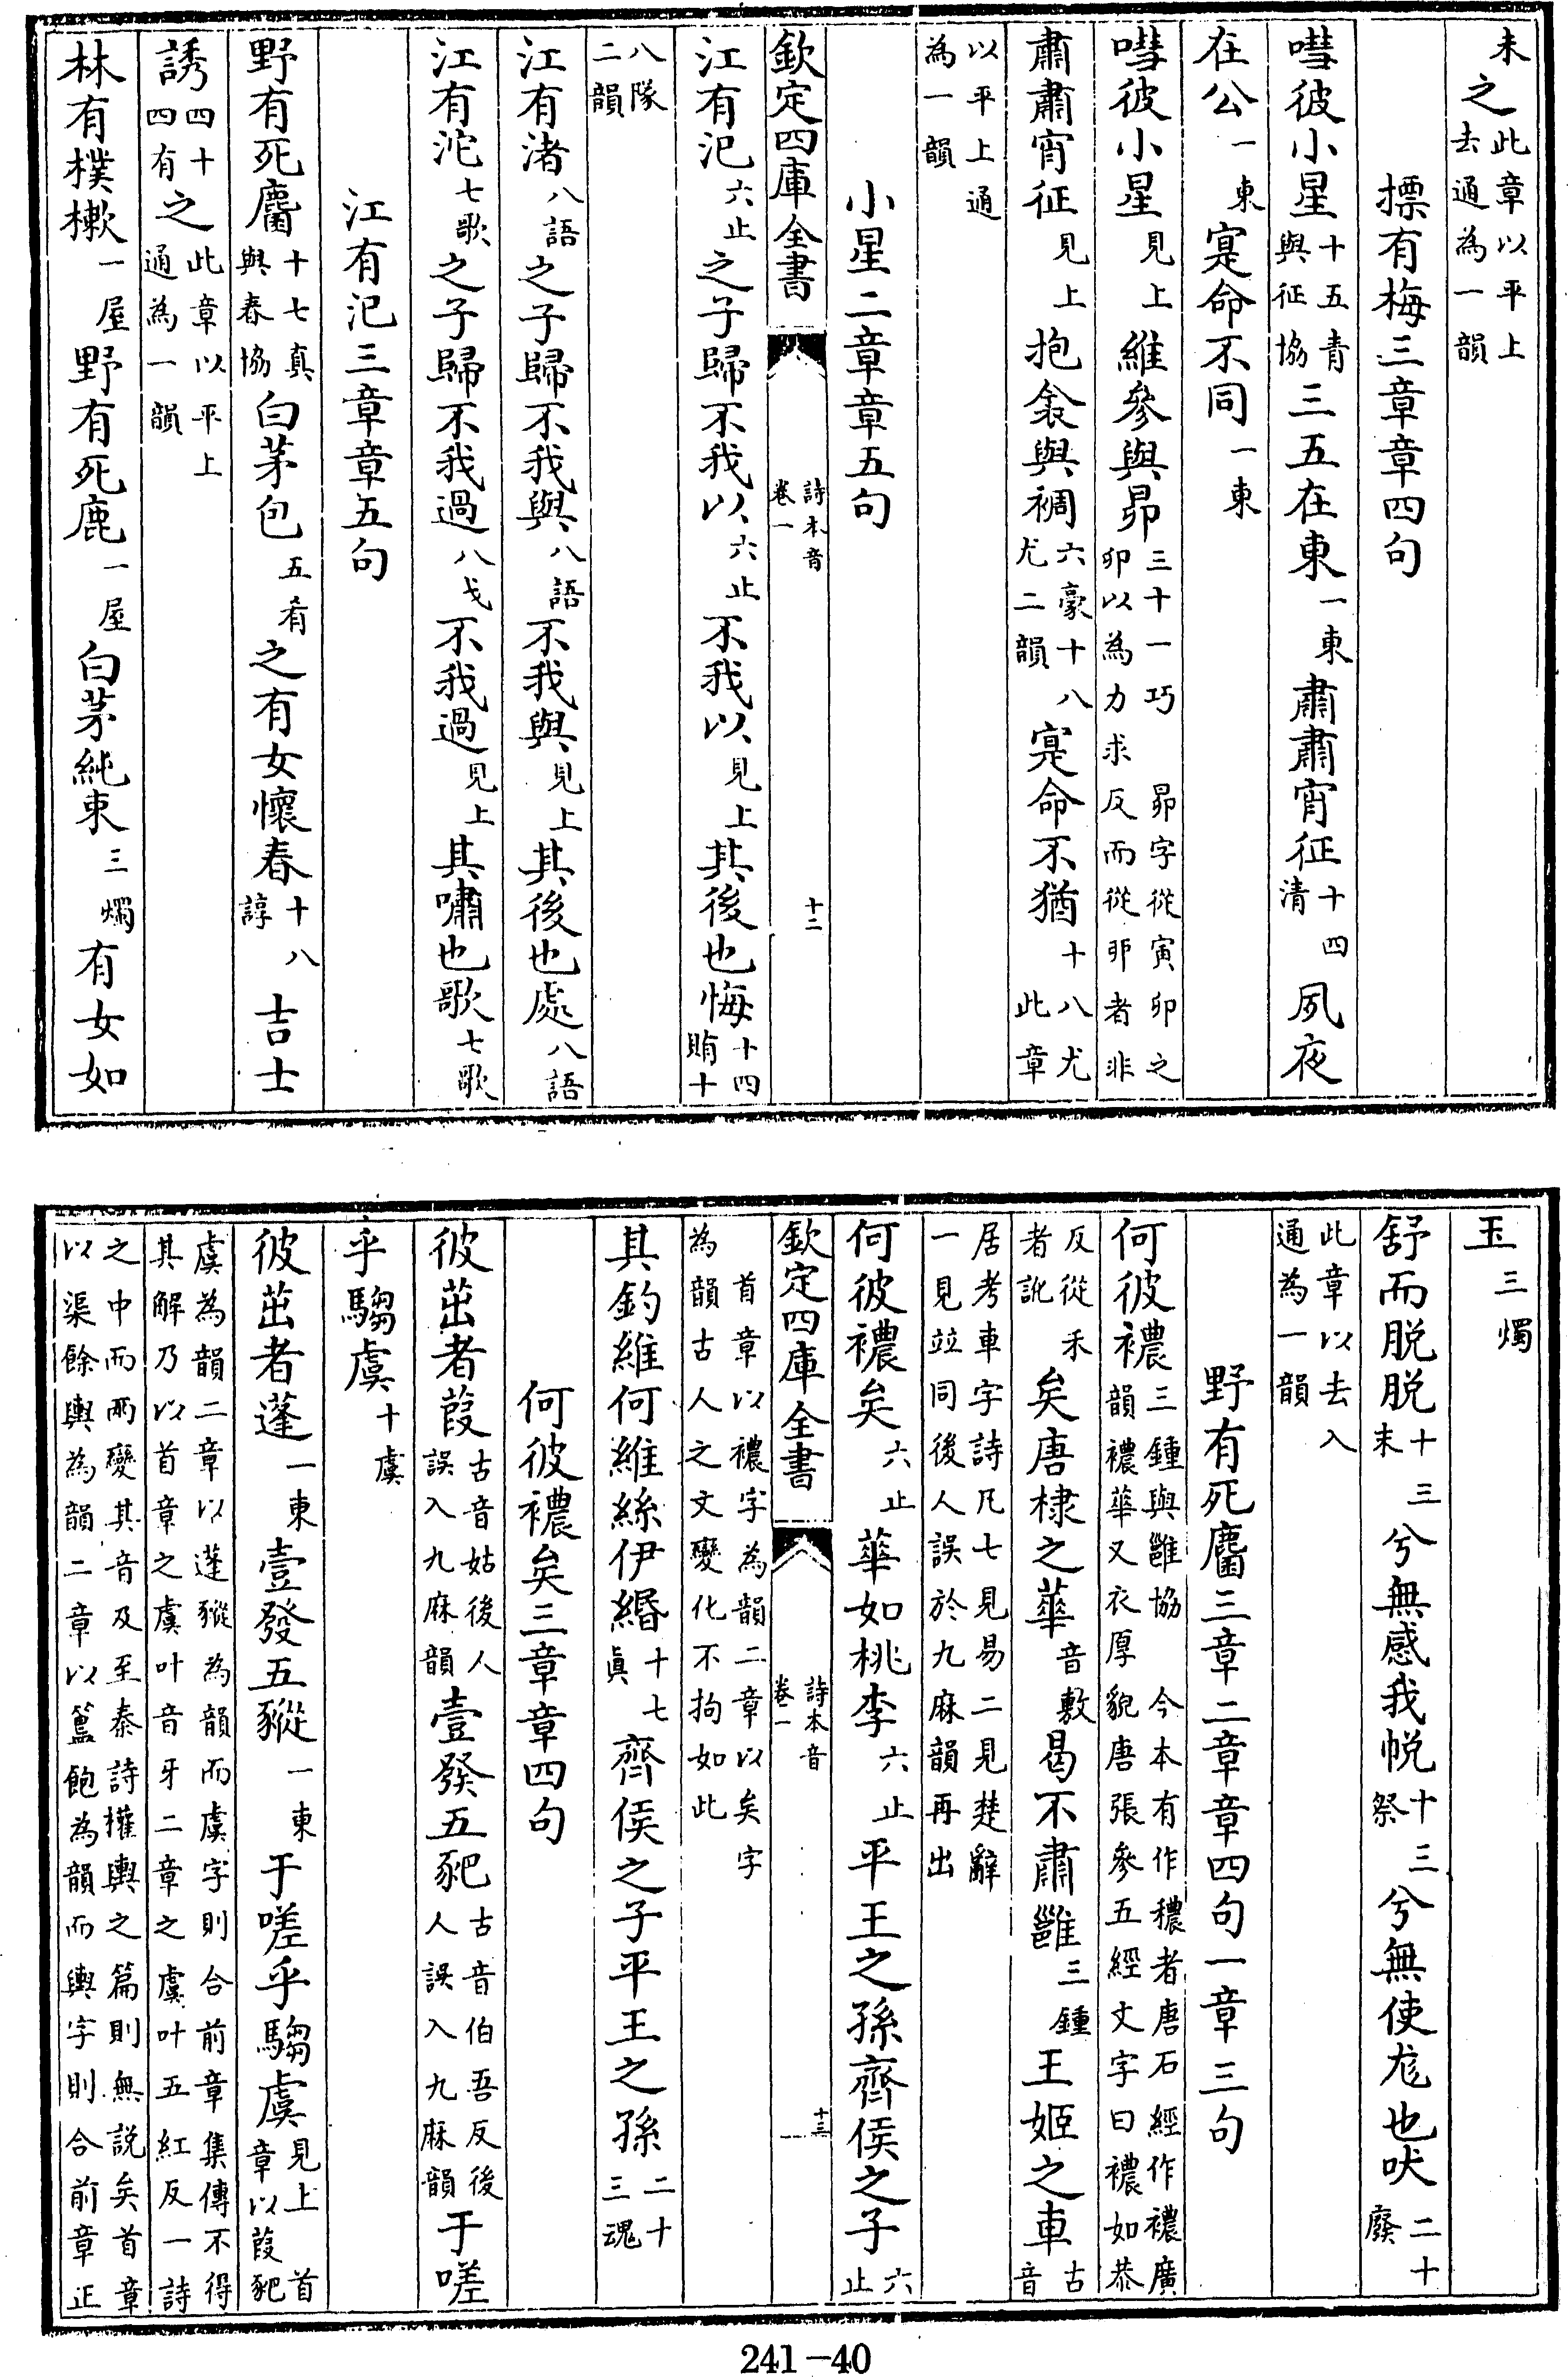 未之此章以平上去通為一韻
摽有梅三章章四句
嘒彼小星十五青與征協三五在東一東肅肅宵征十四清夙夜
在公一東寔命不同一東
嘒彼小星見上維參與昴三十一巧 昴字從寅卯之卯以為力求反而從丣者非
肅肅宵征見上抱衾與裯六豪十八尤二韻寔命不猶十八尤此章
以平上通為一韻
小星二章章五句
欽定四庫全書 詩本音卷一 十二
江有汜六止之子歸不我以六止不我以見上其後也悔十四賄十
八隊二韻
江有渚八語之子歸不我與八語不我與見上其後也處八語
江有沱七歌之子歸不我過八戈不我過見上其嘯也歌七歌
江有汜三章章五句
野有死麕十七真與春協白茅包五肴之有女懷春十八諄吉士
誘四十四有之此章以平上通為一韻
林有樸樕一屋野有死鹿一屋白茅純束三燭有女如
玉三燭
舒而脱脱十三末兮無感我帨十三祭兮無使尨也吠二十廢
此章以去入通為一韻
野有死麕三章二章章四句一章三句
何彼襛三鍾與雝協 今本有作穠者唐石經作襛廣韻襛華又衣厚貌唐張參五經文字曰襛如恭
反從禾者訛矣唐棣之華音敷曷不肅雝三鍾王姬之車古音
居考車字詩凡七見易二見楚辭一見竝同後人誤於九麻韻再出
何彼襛矣六止華如桃李六止平王之孫齊侯之子六止
欽定四庫全書 詩本音卷一 十三
首章以襛字為韻二章以矣字為韻古人之文變化不拘如此
其釣維何維絲伊緡十七真齊侯之子平王之孫二十三魂
何彼襛矣三章章四句
彼茁者葭古音姑後人誤入九麻韻壹發五豝古音伯吾反後人誤入九麻韻于嗟
乎騶虞十虞
彼茁者蓬一東壹發五豵一東于嗟乎騶虞見上 首章以葭豝
虞為韻二章以蓬豵為韻而虞字則合前章集傳不得其解乃以首章之虞叶音牙二章之虞叶五紅反一詩
之中而兩變其音及至秦詩權輿之篇則無説矣首章以渠餘輿為韻二章以簋飽為韻而輿字則合前章正
241-40